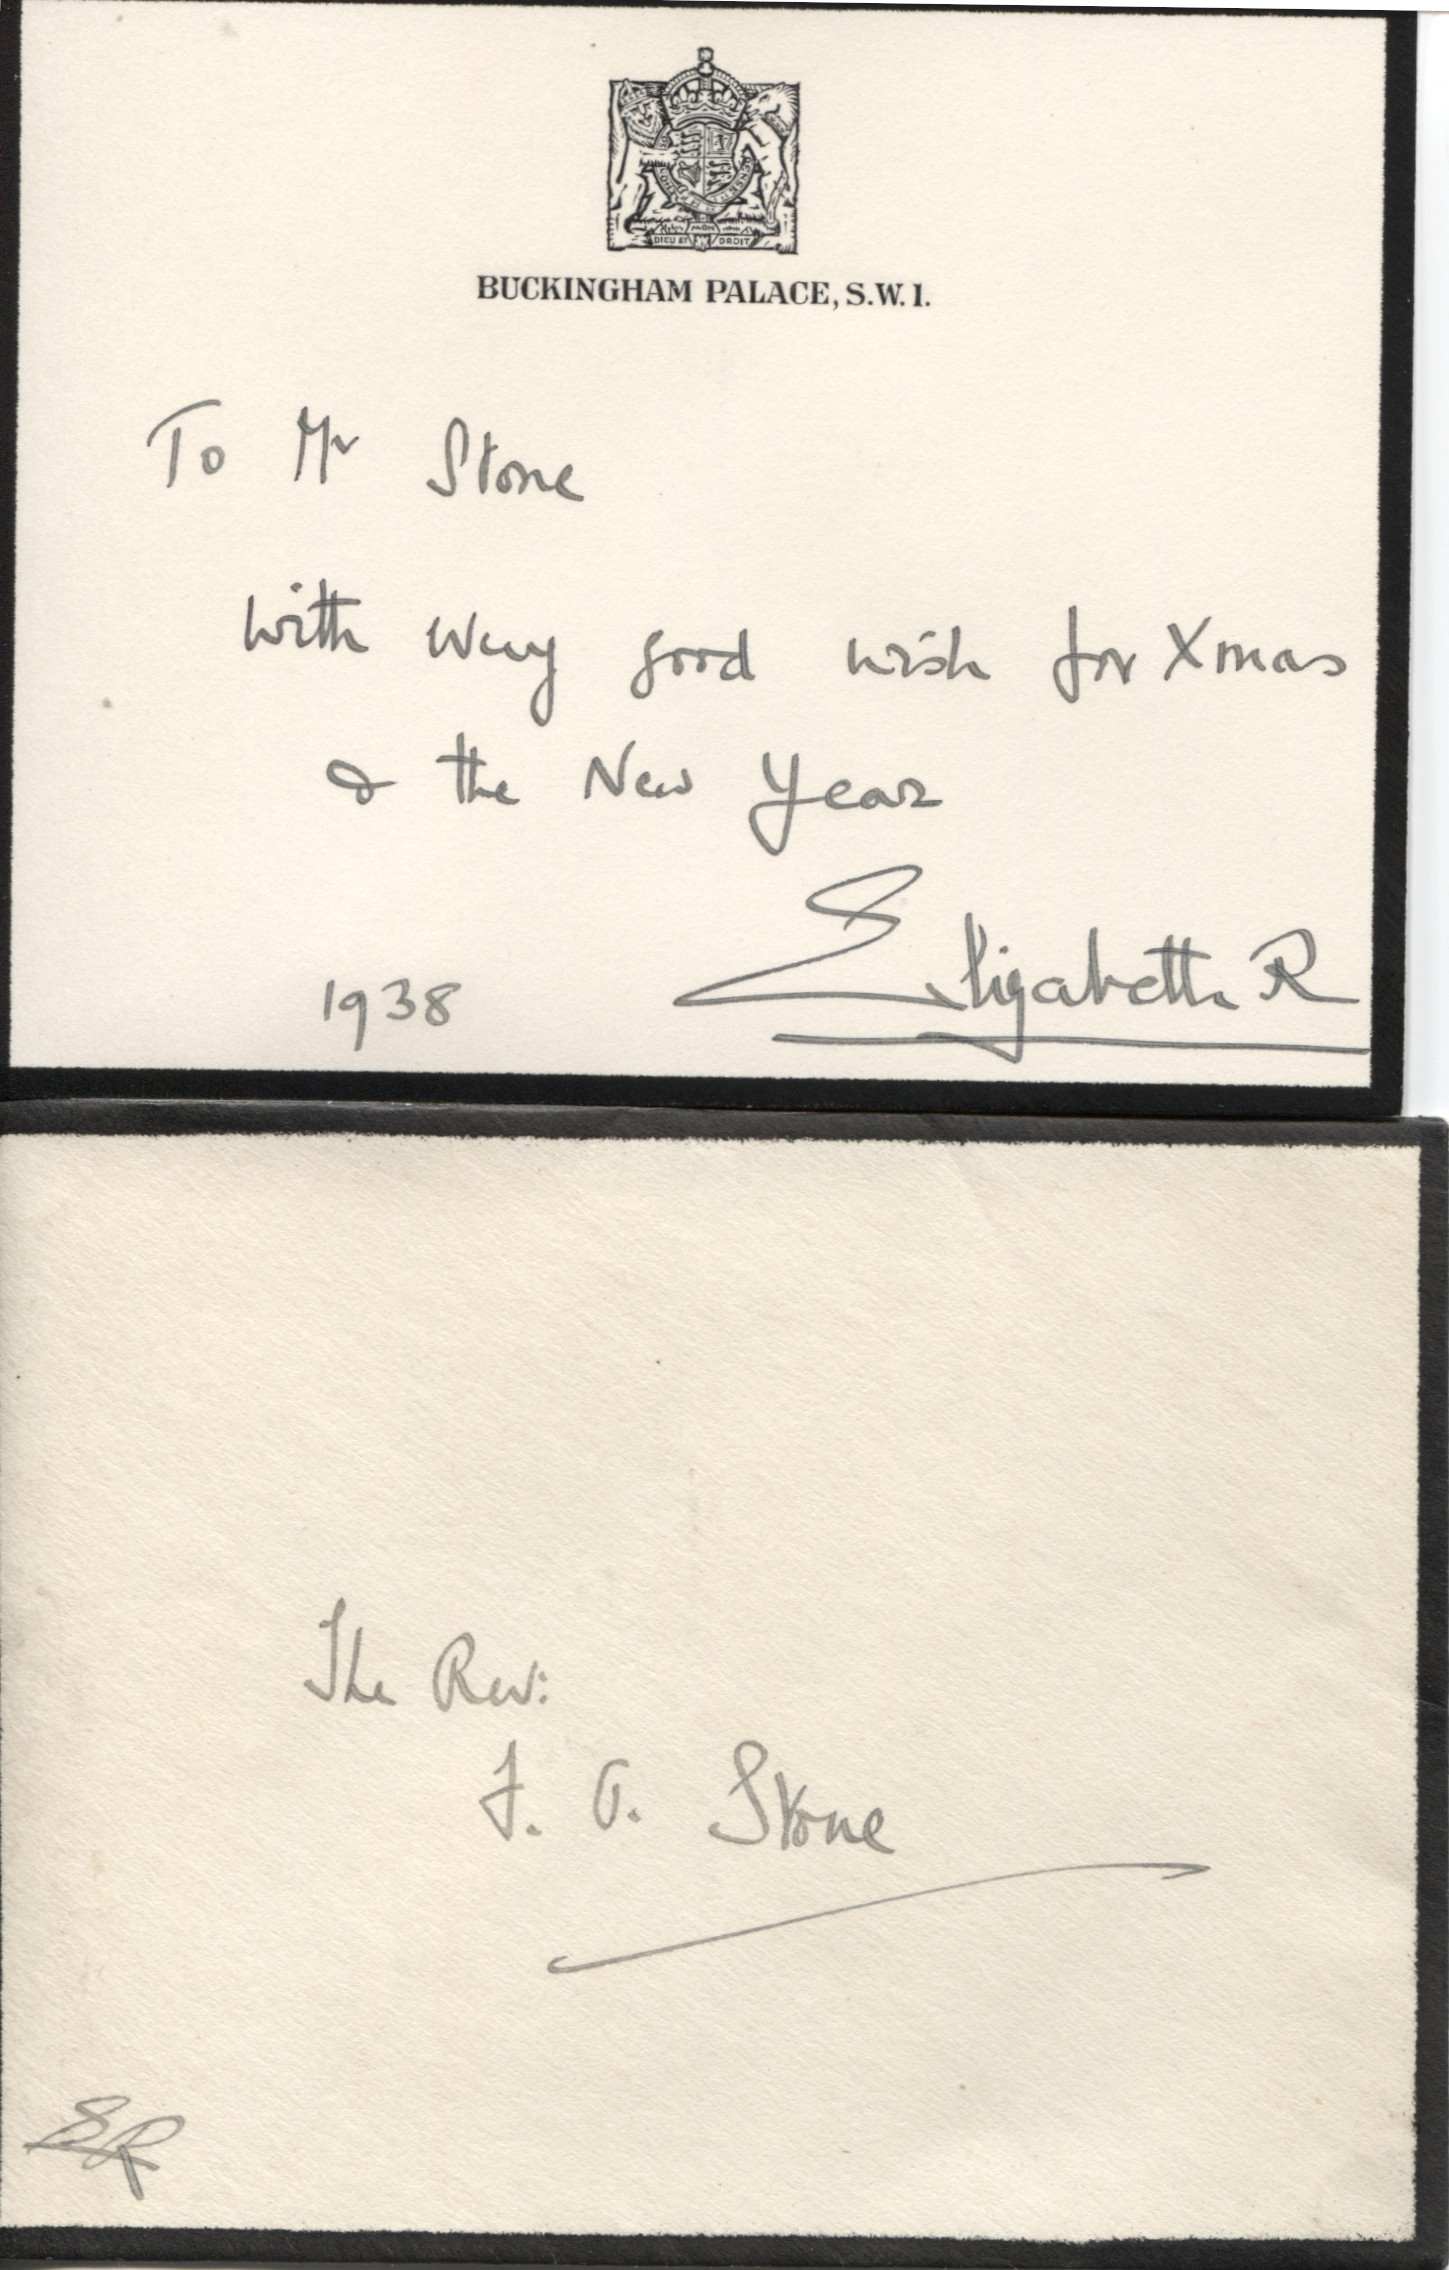 MON
DIEU ET DROIT
BUCKINGHAM PALACE, S.W.1.
To Mr Stone
with every good wish for Xmas
& the New Year
Elizabeth R
1938
The Rev:
F. G. Stone
ER